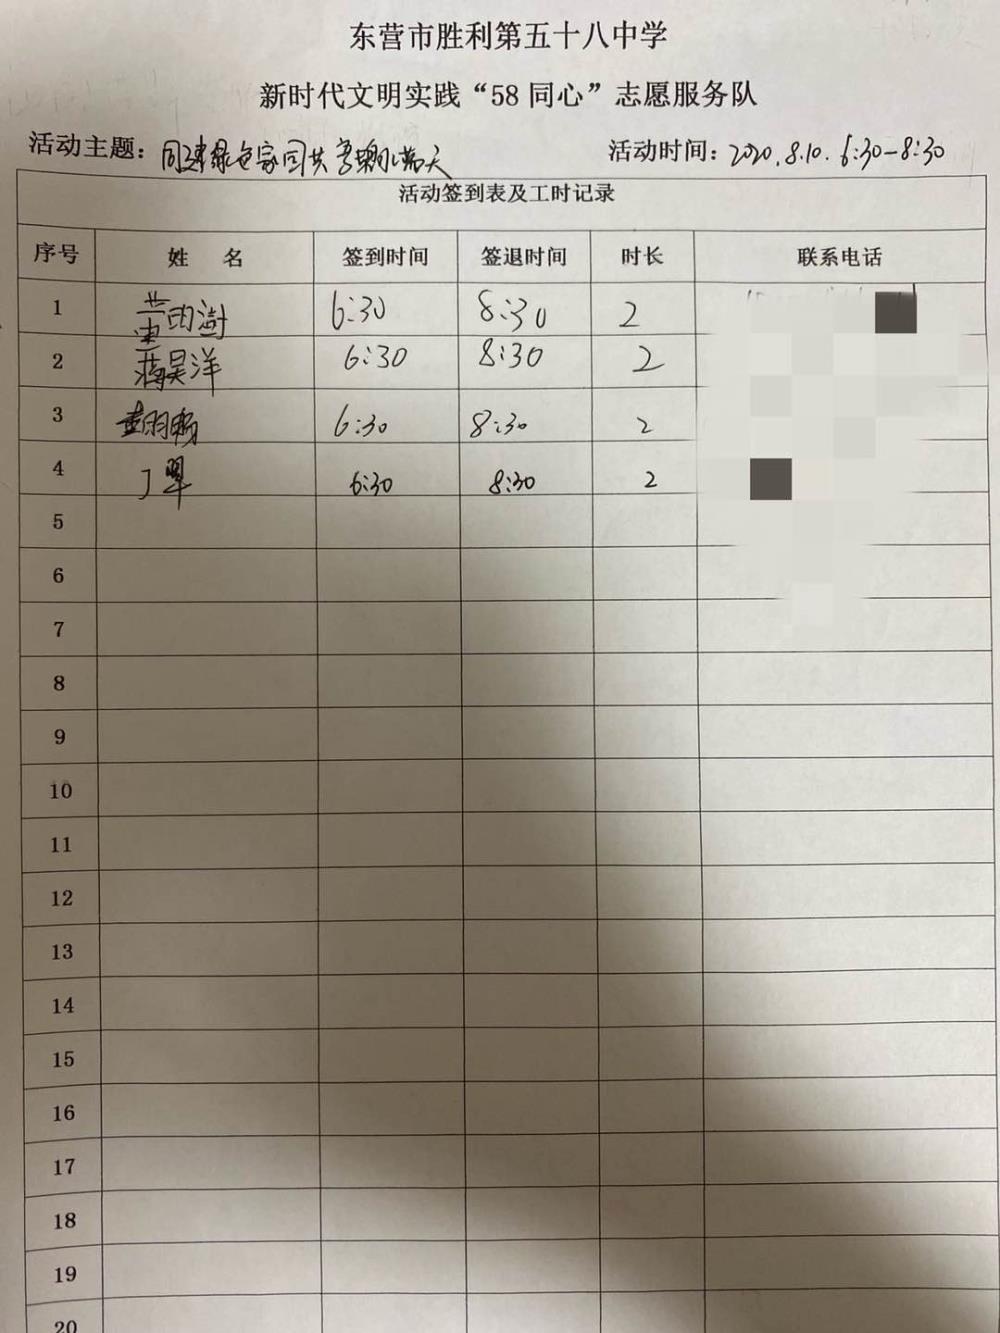 东营市胜利第五十八中学
新时代文明实践“58同心”志愿服务队
活动主题：同建绿色家园共享 满天 活动时间：2020.8.10. 6:30-8:30
活动签到表及工时记录
序号 姓 名 签到时间 签退时间 时长 联系电话
1 6:30 8:30 2
2 蒋昊洋 6:30 8:30 2
3 6:30 8:30 2
4 丁翠 6:30 8:30 2
5
6
7
8
9
10
11
12
13
14
15
16
17
18
19
20